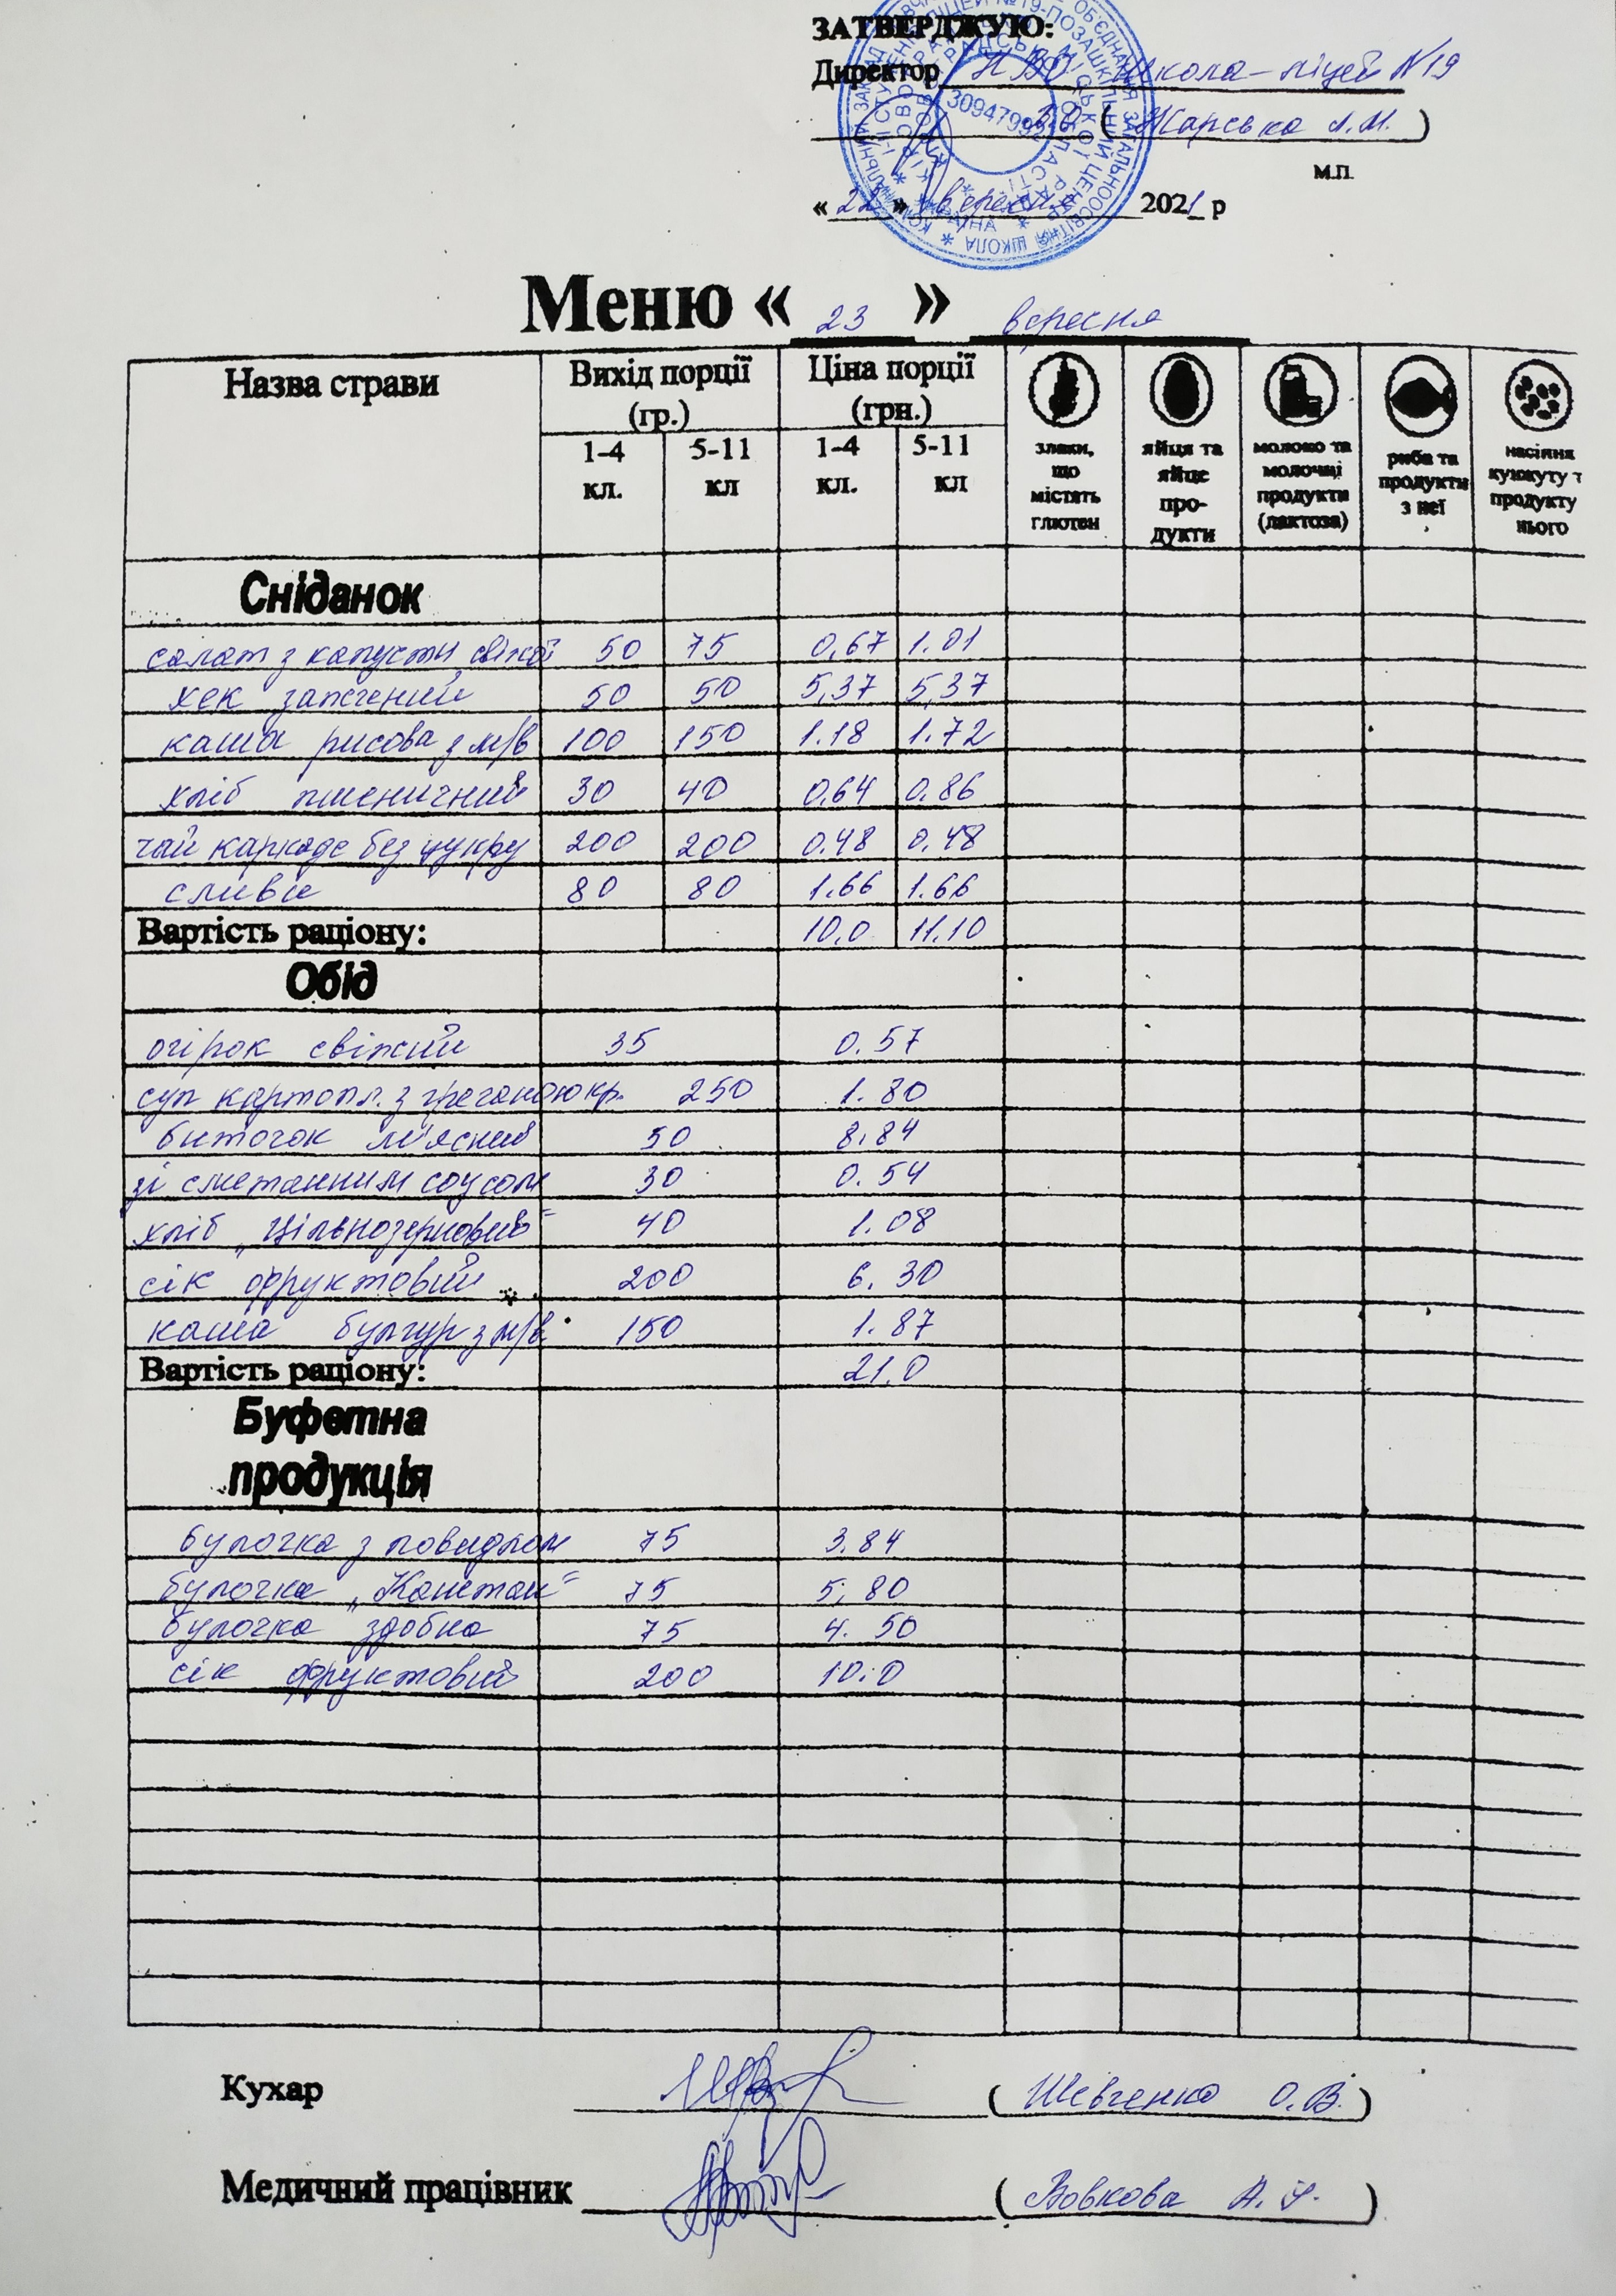 ЗАТВЕРДЖУЮ:
Директор НВО Школа-ліцей №19
( Жарська Л.М. )
м.п.
« 22 » вересня 2021 р
Меню « 23 » вересня
Назва страви Вихід порції (гр.) Ціна порції (грн.)
1-4 кл. 5-11 кл 1-4 кл. 5-11 кл
злаки, що містять глютен
яйця та яйце про-дукти
молоко та молочні продукти (лактоза)
риба та продукти з неї
насіння кунжуту т продукту нього
Сніданок
салат з капусти свіжої 50 75 0,67 1.01
хек запечений 50 50 5,37 5,37
каша рисова з м/в 100 150 1.18 1.72
хліб пшеничний 30 40 0.64 0.86
чай каркаде без цукру 200 200 0.48 0.48
слива 80 80 1.66 1.66
Вартість раціону: 10.0 11.10
Обід
огірок свіжий 35 0.57
суп картопл. з гречаною кр. 250 1.80
биточок м'ясний 50 8.84
зі сметанним соусом 30 0.54
хліб „Цільнозерновий" 40 1.08
сік фруктовий 200 6.30
каша булгур з м/в 150 1.87
Вартість раціону: 21.0
Буфетна
продукція
булочка з повидлом 75 3.84
булочка „Каштан" 75 5,80
булочка здобна 75 4.50
сік фруктовий 200 10.0
Кухар ( Шевченко О.В. )
Медичний працівник ( Вовкова )